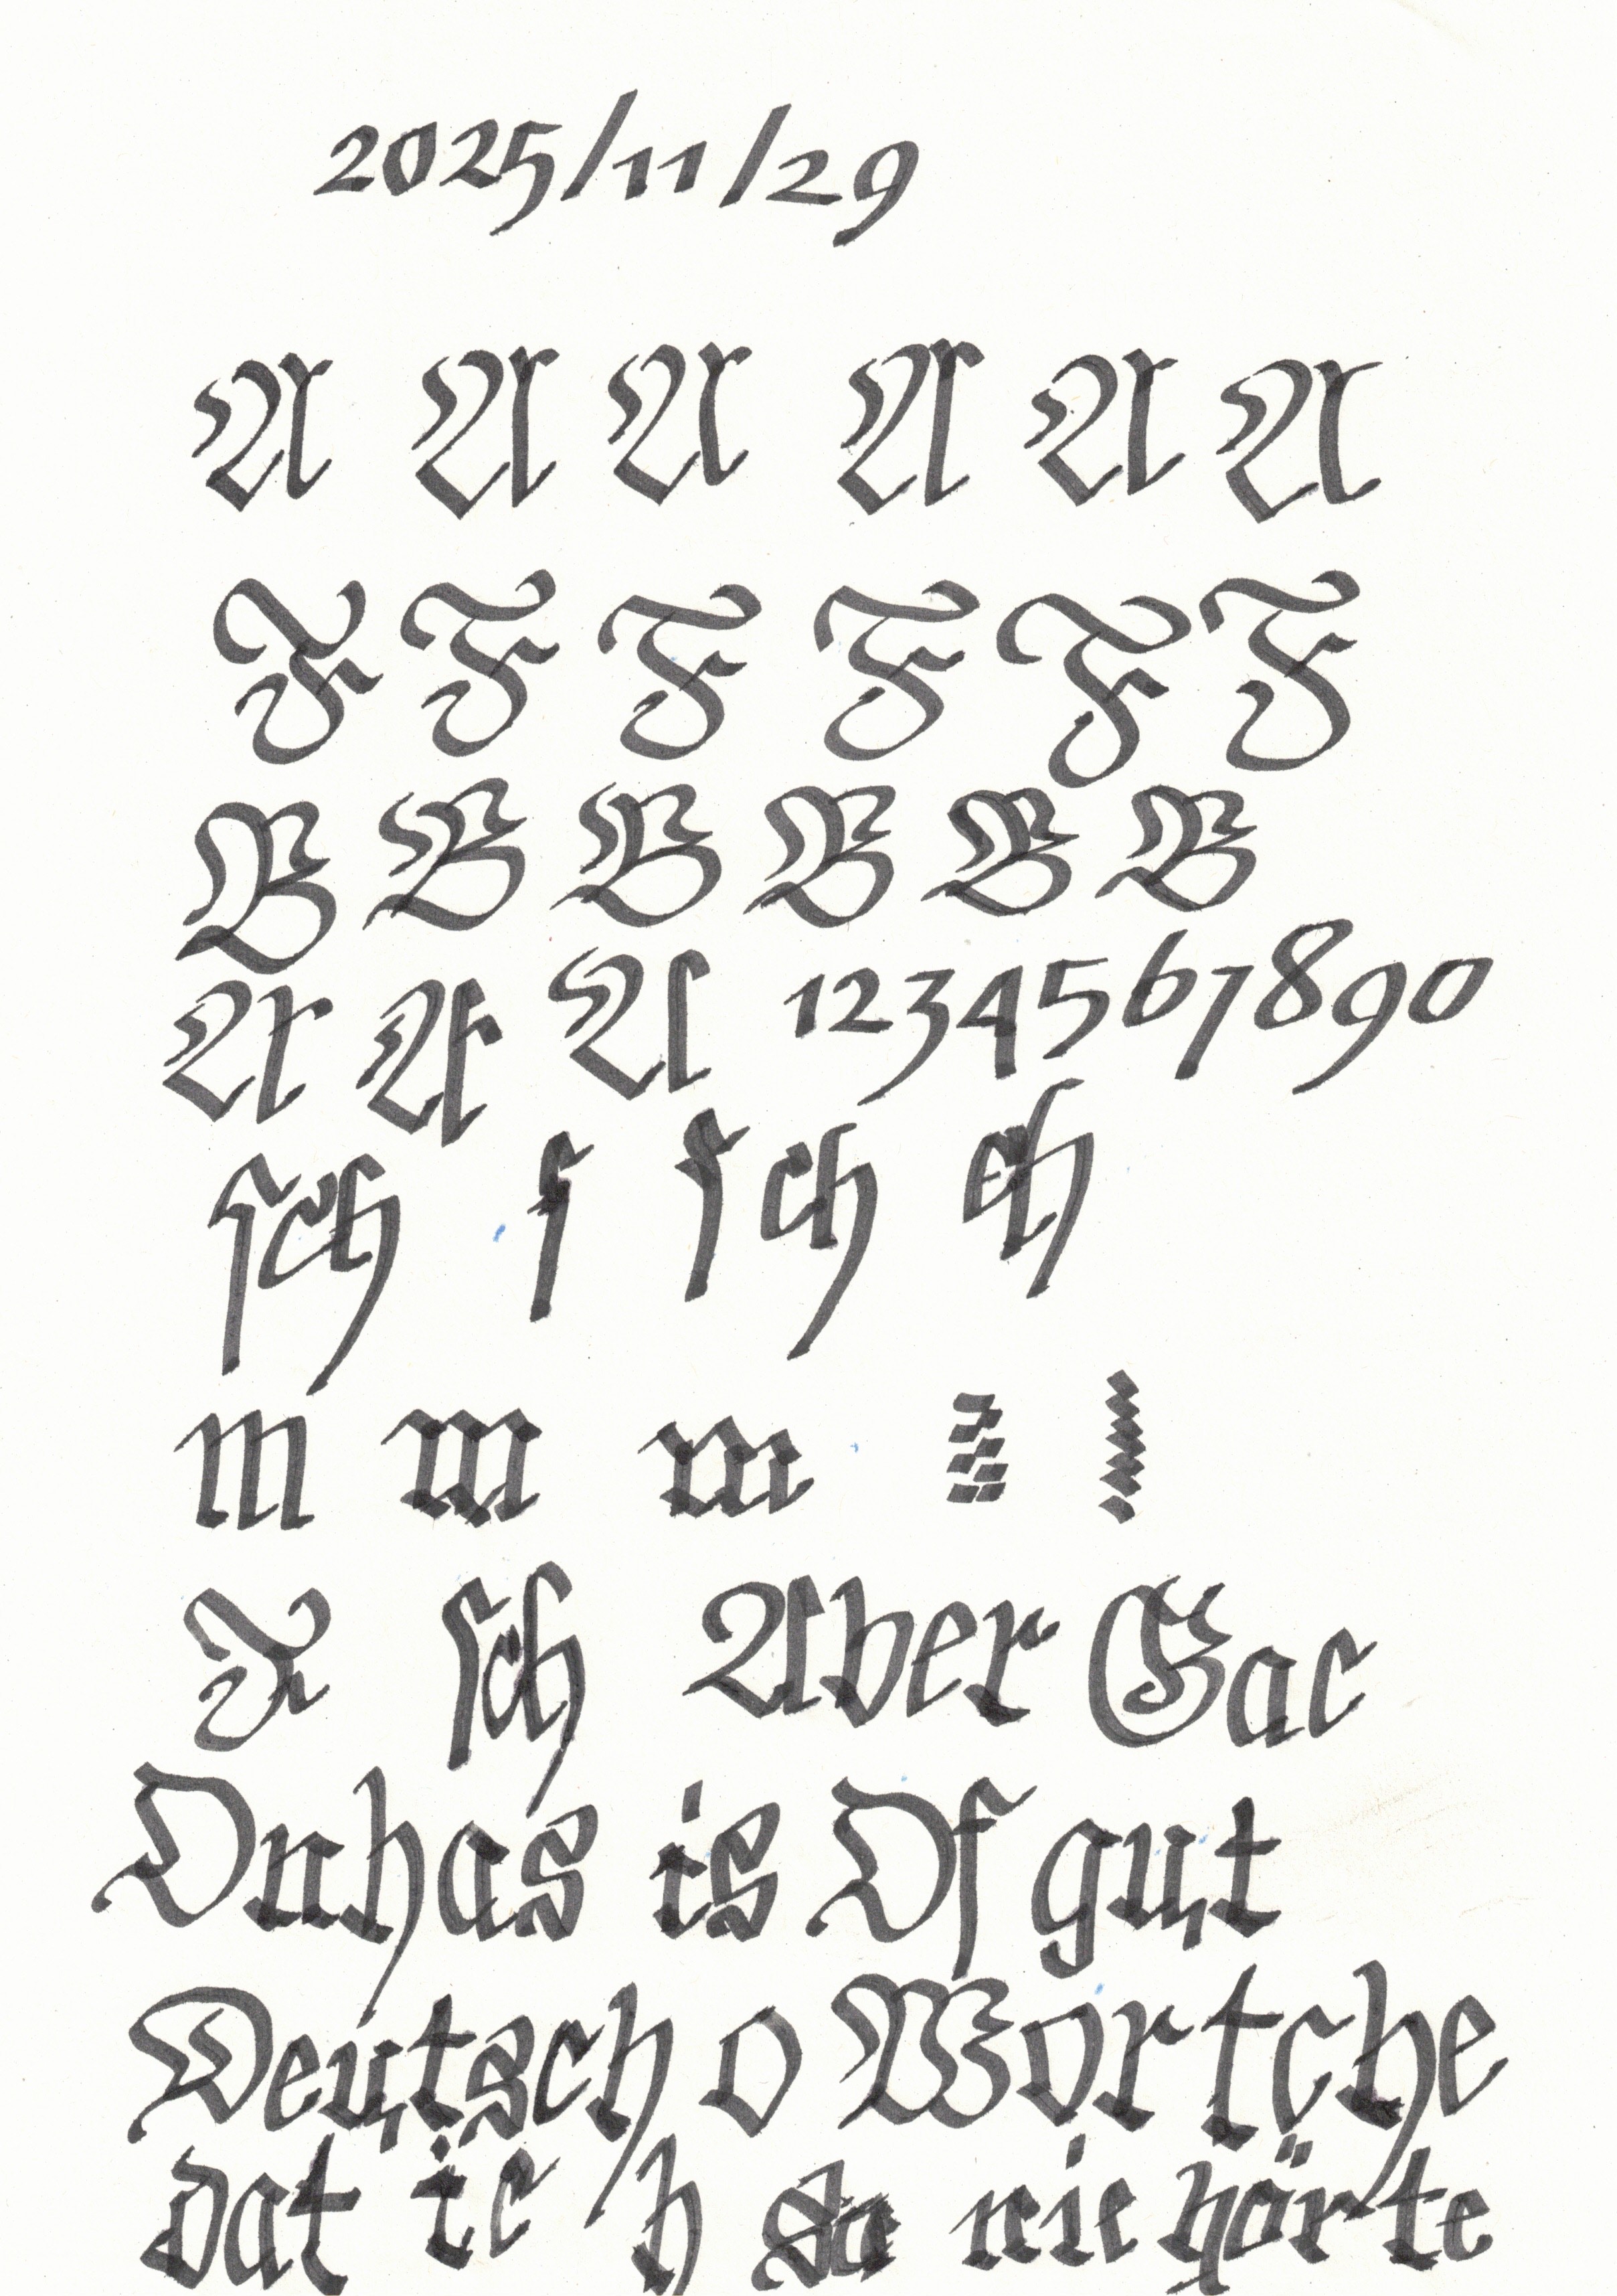 2025/11/29
A A A A A A
F F F F F F
B B B B B B
A A A 1234567890
ſch ſ ſ ch ch
m m m
ſch Aber
is gut
Deutsch o Wortche
dat ic h nie hörte